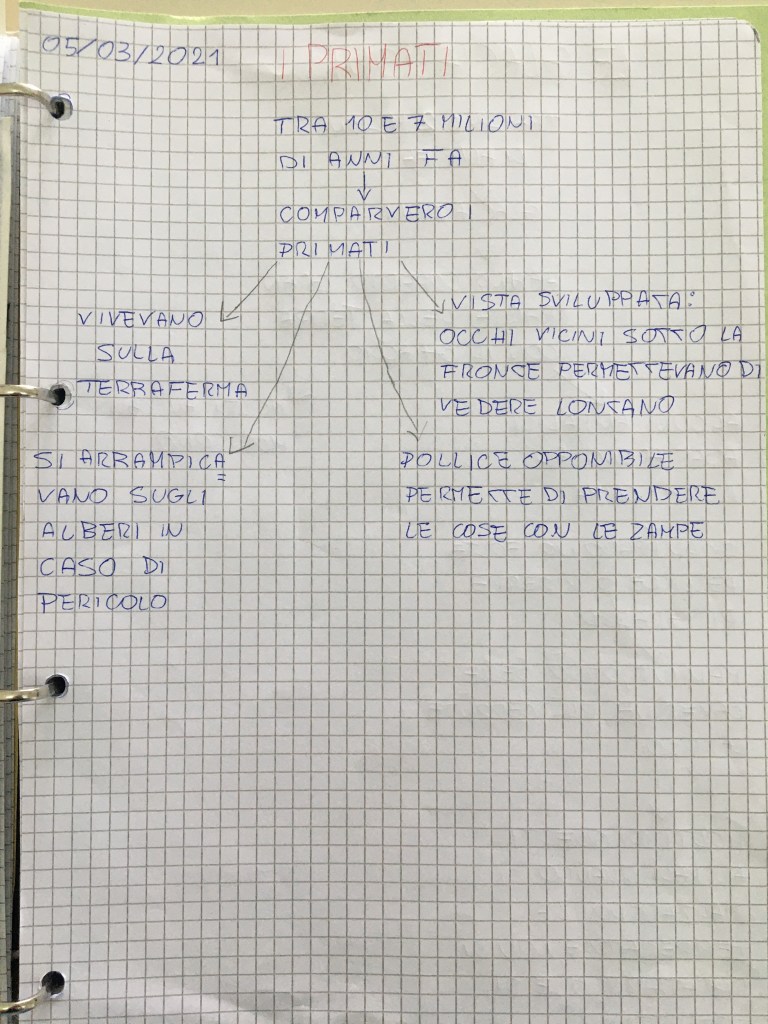 05/03/2021
I PRIMATI
TRA 10 E 7 MILIONI
DI ANNI FA
COMPARVERO I
PRIMATI
VIVEVANO
SULLA
TERRAFERMA
VISTA SVILUPPATA:
OCCHI VICINI SOTTO LA
FRONTE PERMETTEVANO DI
VEDERE LONTANO
SI ARRAMPICA=
VANO SUGLI
ALBERI IN
CASO DI
PERICOLO
POLLICE OPPONIBILE
PERMETTE DI PRENDERE
LE COSE CON LE ZAMPE